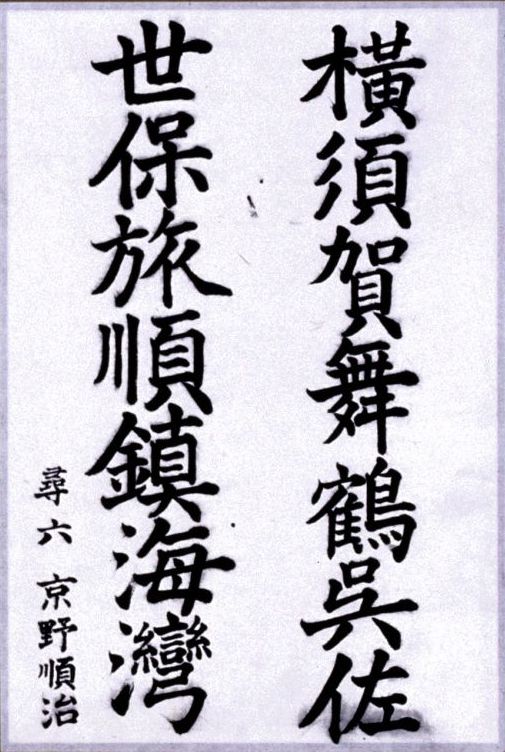 橫須賀舞鶴呉佐
世保旅順鎮海灣
尋六 京野順治